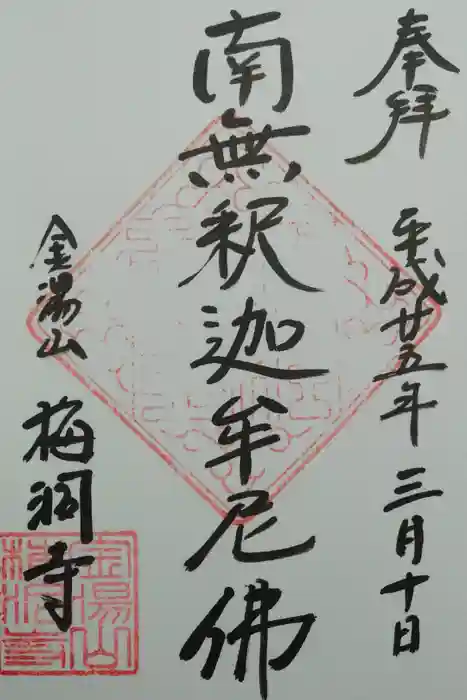 奉拝
平成廿五年三月十日
南無釈迦牟尼佛
金湯山
梅洞寺